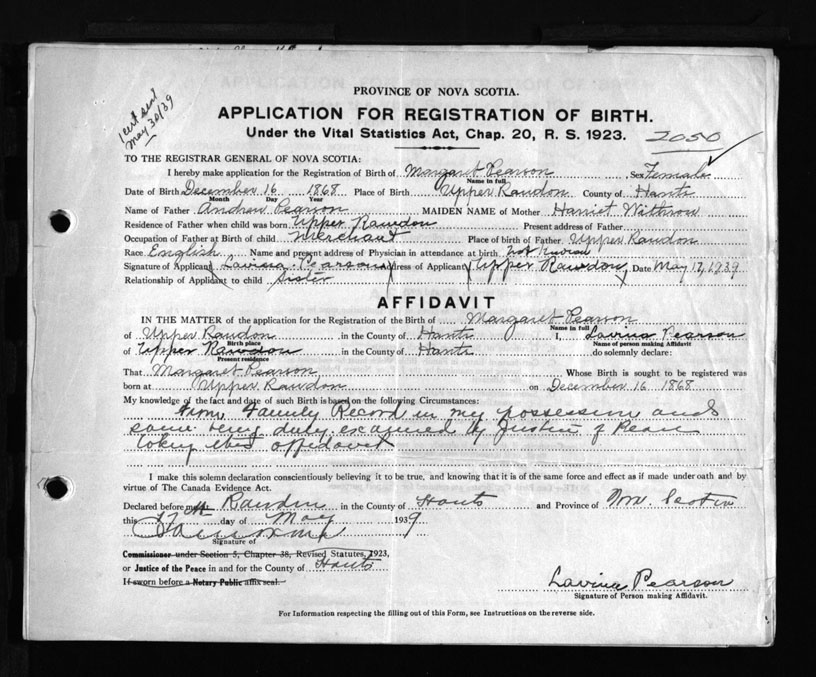 1 cert sent
May 30/39
PROVINCE OF NOVA SCOTIA.
APPLICATION FOR REGISTRATION OF BIRTH.
Under the Vital Statistics Act, Chap. 20, R. S. 1923. 2050
TO THE REGISTRAR GENERAL OF NOVA SCOTIA:
I hereby make application for the Registration of Birth of Margaret Pearson Sex Female
Name in full
Date of Birth December 16 1868 Place of Birth Upper Rawdon County of Hants
Month Day Year
Name of Father Andrew Pearson MAIDEN NAME of Mother Harriet Withrow
Residence of Father when child was born Upper Rawdon Present address of Father
Occupation of Father at Birth of child Merchant Place of birth of Father Upper Rawdon
Race English Name and present address of Physician in attendance at birth not known
Signature of Applicant Lavina Pearson Address of Applicant Upper Rawdon Date May 17, 1939
Relationship of Applicant to child Sister
AFFIDAVIT
IN THE MATTER of the application for the Registration of the Birth of Margaret Pearson
Name in full
of Upper Rawdon in the County of Hants I, Lavina Pearson
Birth place Name of person making Affidavit
of Upper Rawdon in the County of Hants do solemnly declare:
Present residence
That Margaret Pearson Whose Birth is sought to be registered was
born at Upper Rawdon on December 16 1868
My knowledge of the fact and date of such Birth is based on the following Circumstances:
From Family Record in my possession and
same being duly examined by Justice of Peace
taking this affidavit
I make this solemn declaration conscientiously believing it to be true, and knowing that it is of the same force and effect as if made under oath and by
virtue of The Canada Evidence Act.
Declared before me at Rawdon in the County of Hants and Province of Nova Scotia
this 17th day of May 1939
Signature of
Commissioner under Section 5, Chapter 38, Revised Statutes, 1923,
or Justice of the Peace in and for the County of Hants
If sworn before a Notary Public affix seal.
Lavina Pearson
Signature of Person making Affidavit.
For Information respecting the filling out of this Form, see Instructions on the reverse side.